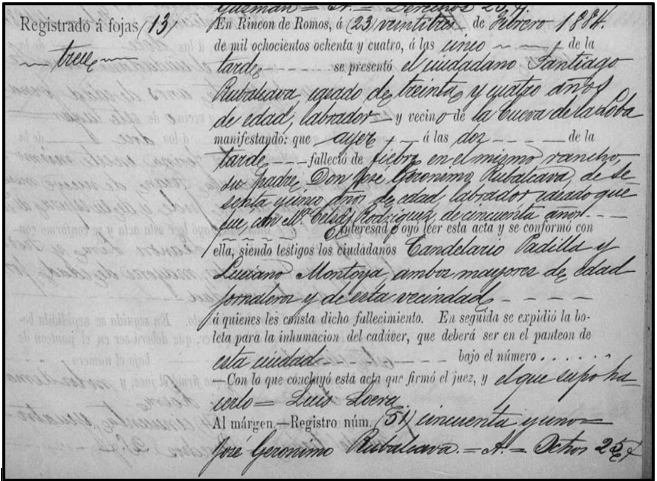 Registrado á fojas (13)
trece
Guzman = A. = Derechos
En Rincon de Romos, á (23) veintitres de Febrero 1884.
de mil ochocientos ochenta y cuatro, á las cinco de la
tarde se presentó el ciudadano Santiago
Rubalcava casado de treinta y cuatro años
de edad, labrador y vecino de la Cueva de la Loba
manifestando: que ayer á las dos de la
tarde falleció de fiebre en el mismo rancho,
su padre, Don José Geronimo Rubalcava, de se
senta y cinco años de edad, labrador, casado que
fue, con Mª Rodriguez, de cincuenta años.
interesado oyó leer esta acta y se conformó con
ella, siendo testigos los ciudadanos Candelario Padilla y
Luciano Montoya, ambos mayores de edad
jornaleros y de esta vecindad
á quienes les consta dicho fallecimiento. En seguida se expidió la bo-
leta para la inhumacion del cadáver, que deberá ser en el panteon de
esta ciudad bajo el número ......
—Con lo que concluyó esta acta que firmó el juez, y el que supo ha
cerlo = Luis Loera
Al márgen.—Registro núm. (51) cincuenta y uno =
José Geronimo Rubalcava. = A. = Dchos 25